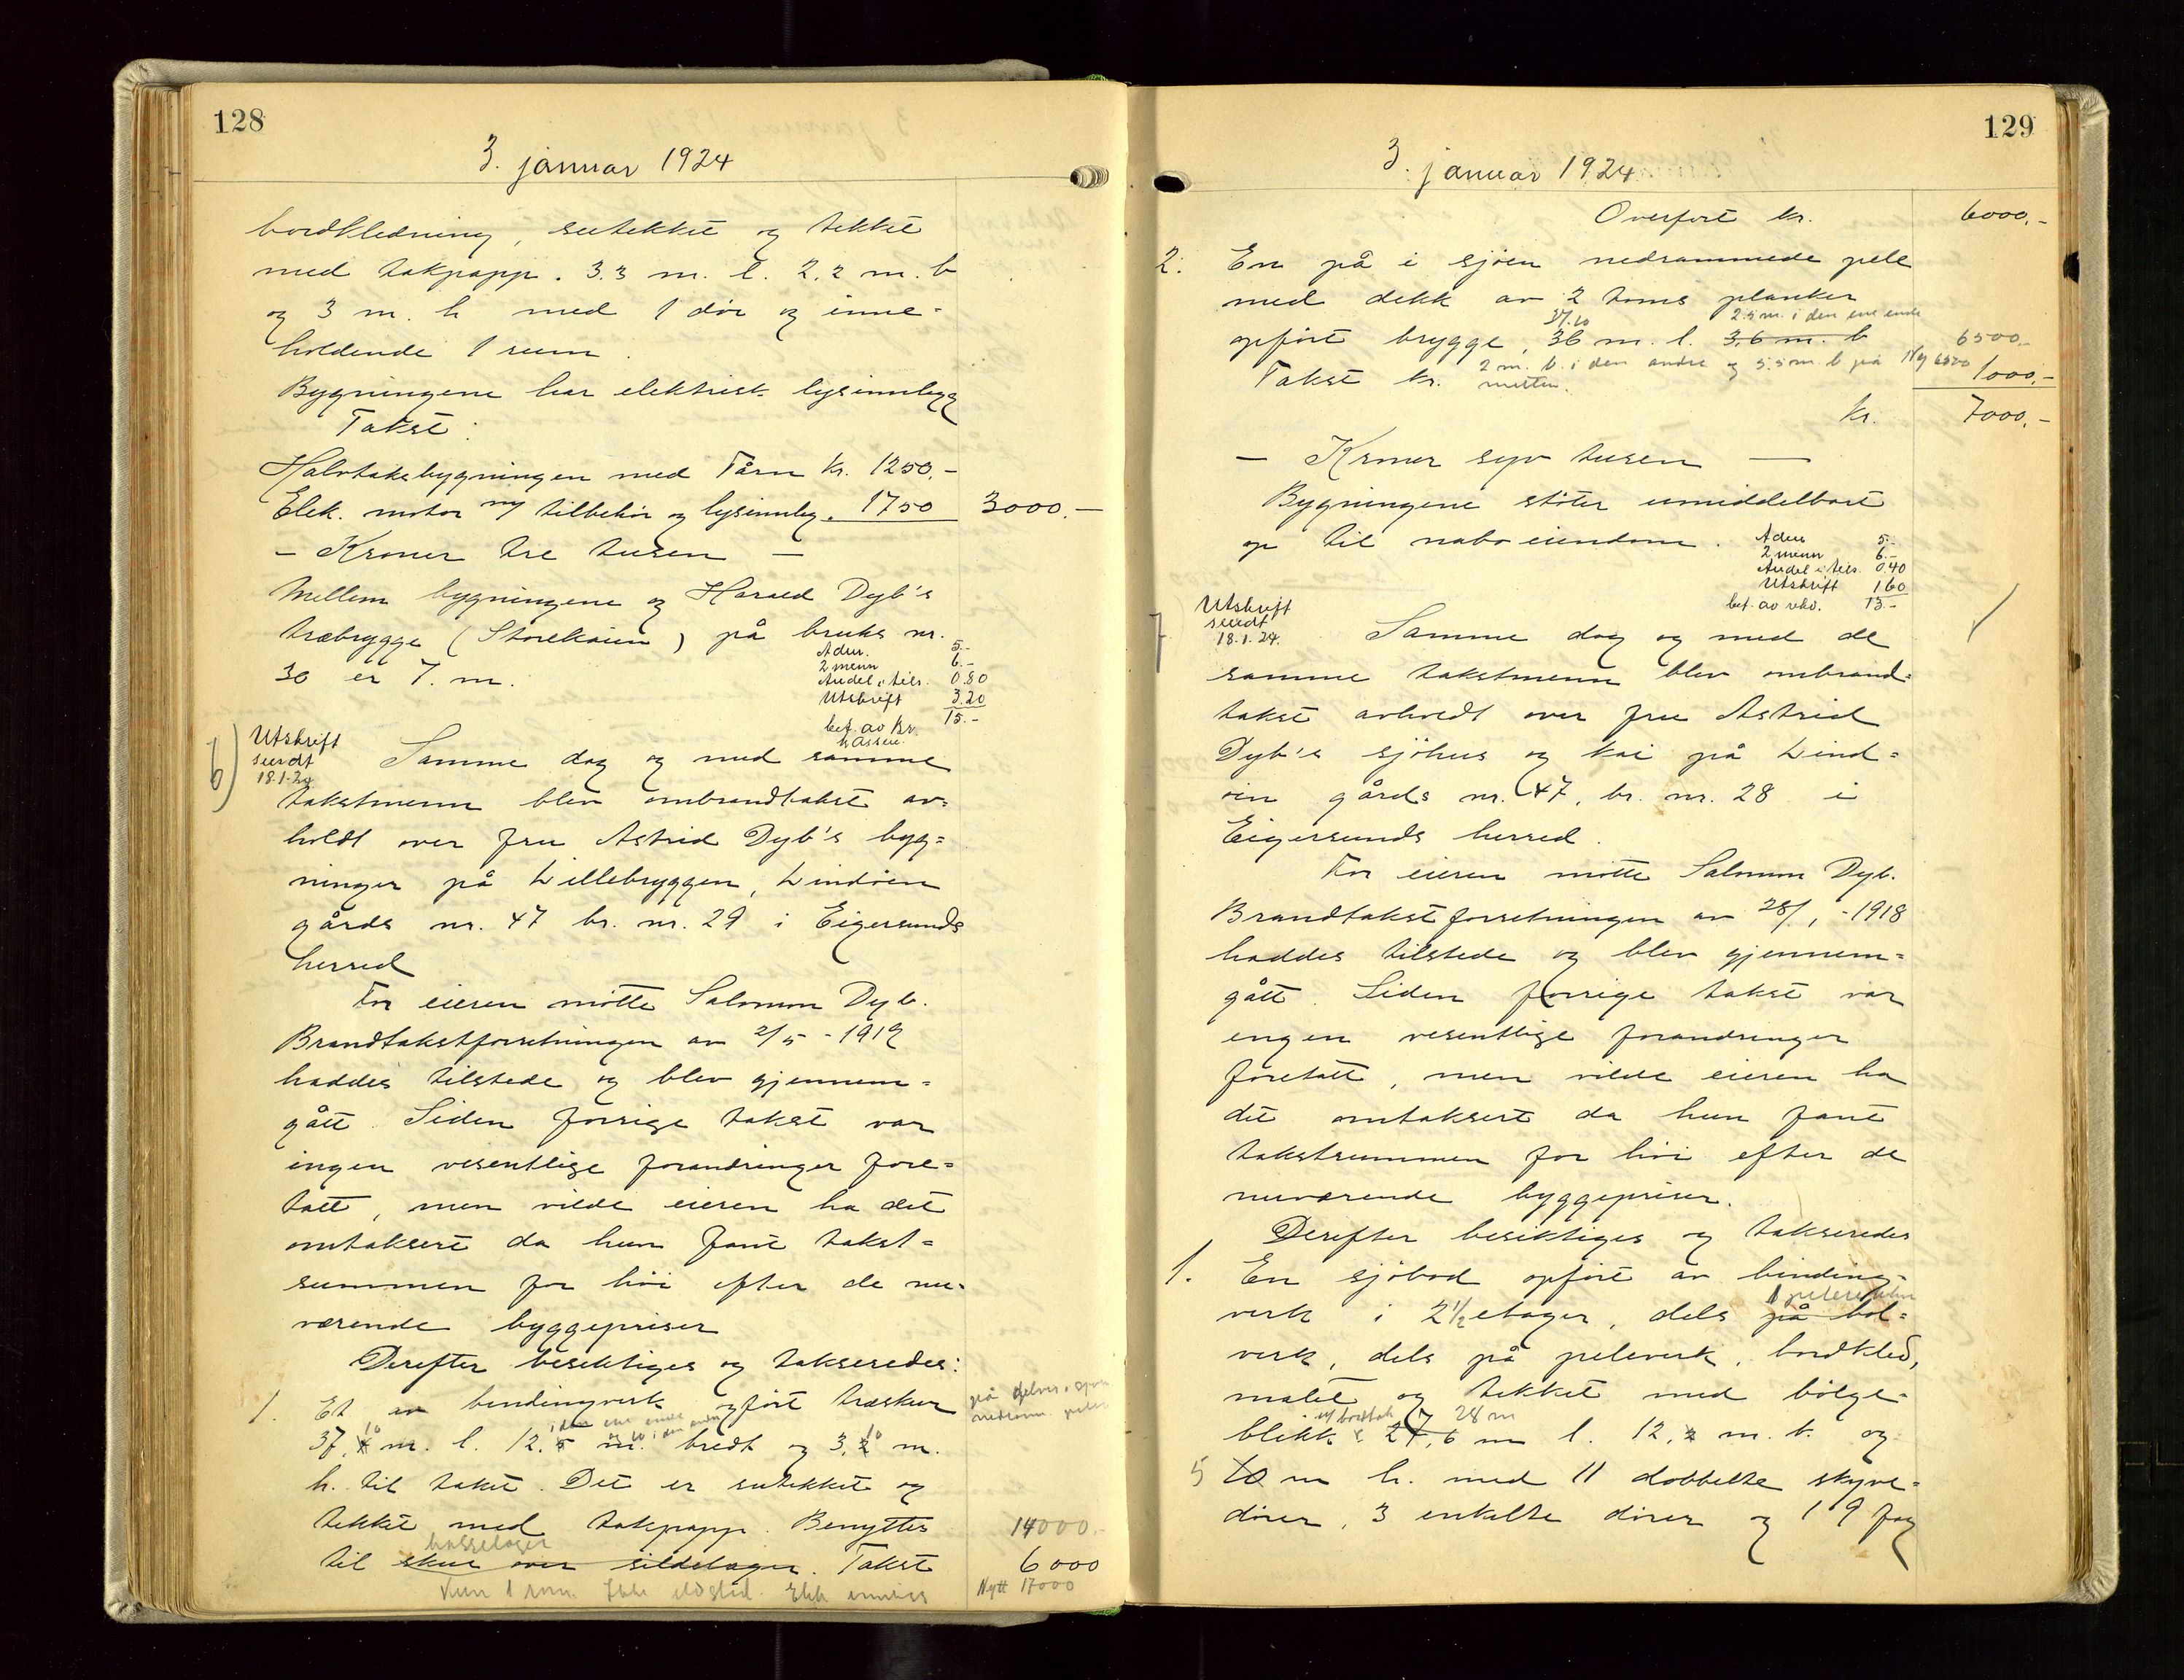 128
3. januar 1924
bordkledning, sutekket og tekket
med takpapp. 3.3 m. l. 2.2 m. b
og 3 m. h med 1 dør og inne-
holdende 1 rum.
Bygningene har elektrisk lysinnlegg
Takst:
Halvtaksbygningen med Tårn kr. 1250.-
Elek. motor m/ tilbehør og lysinnleg. 1750 3000.-
- Kroner tre tusen -
Mellem bygningene og Harald Dyb's
træbrygge (Storekaien) på bruks nr.
30 er 7. m.
Adm. 5.-
2 menn 6.-
Andel i tils. 0.80
Utskrift 3.20
15.-
bet. av kr.
kassen.
6)
Utskrift
sendt
18.1.24
Samme dag og med samme
takstmenn blev ombrandtakst av-
holdt over fru Astrid Dyb's byg-
ninger på Lillebryggen, Lindøen
gårds nr. 47 br. nr. 29 i Eigersunds
herred
For eieren møtte Salomon Dyb.
Brandtakstforretningen av 2/5 - 1919
haddes tilstede og blev gjennem-
gått. Siden forrige takst var
ingen vesentlige forandringer fore-
tatt, men vilde eieren ha det
omtaksert da hun fant takst-
summen for høi efter de nu-
værende byggepriser
Derefter besiktiges og takseredes:
1. Et av bindingverk opført træskur
på
nedramm. peler
i den ene ende og 10 i den andre
37, m. l. 12.5 m. bredt og 3,2 m.
10 10
h. til taket. Det er sutekket og
tekket med takpapp. Benyttes 14000.-
kasselager
til skur over sildelager. Takst 6000
Kun 1 rom. Ikke ildsted. Elek Nytt 17000
129
3. januar 1924
Overført kr. 6000.-
2. En på i sjøen nedrammede pele
med dekk av 2 toms planker
37.10 2.5 m. i den ene ende
opført brygge, 36 m. l. 3,6 m. b 6500.-
2 m. b. i den andre og 5.5 m. b på midten. Ny 6500
Takst kr. 1000.-
kr. 7000.-
- Kroner syv tusen -
Bygningene støter umiddelbart
op til naboeiendom.
Adm 5.-
2 menn 6.-
Andel i tils. 0.40
Utskrift 1.60
bet. av rekv. 13.-
7
Utskrift
sendt
18.1.24.
Samme dag og med de
samme takstmenn blev ombrand-
takst avholdt over fru Astrid
Dyb's sjøhus og kai på Lind-
øen gårds nr. 47, br. nr. 28 i
Eigersunds herred.
For eieren møtte Salomon Dyb.
Brandtakstforretningen av 28/1 - 1918
haddes tilstede og blev gjennem-
gått. Siden forrige takst var
ingen vesentlige forandringer
foretatt, men vilde eieren ha
det omtaksert da hun fant
takstsummen for høi efter de
nuværende byggepriser.
Derefter besiktiges og takseredes
1. En sjøbod opført av binding-
verk i 2 1/2 etager, dels på bol-
verk, dels på peleverk, bordkled,
malet og tekket med bølge-
m/ bordtak 28 m
blikk 27,6 m l. 12,2 m. b. og
5 10 m h. med 11 dobbelte skyve-
dører, 3 enkelte dører og 19 fag